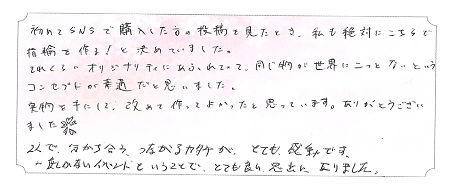 初めてSNSで購入した方の投稿を見たとき、私も絶対にこちらで
指輪を作る!と決めていました。
それくらいオリジナリティにあふれていて、同じ物が世界に二つとないという
コンセプトが素適だと思いました。
実物を手にして、改めて作ってよかったと思っています。ありがとうござい
ました
2人で、分かち合う、つながるカタチが、とても感動です。
一度しかないイベントということで、とても良い思出になりました。